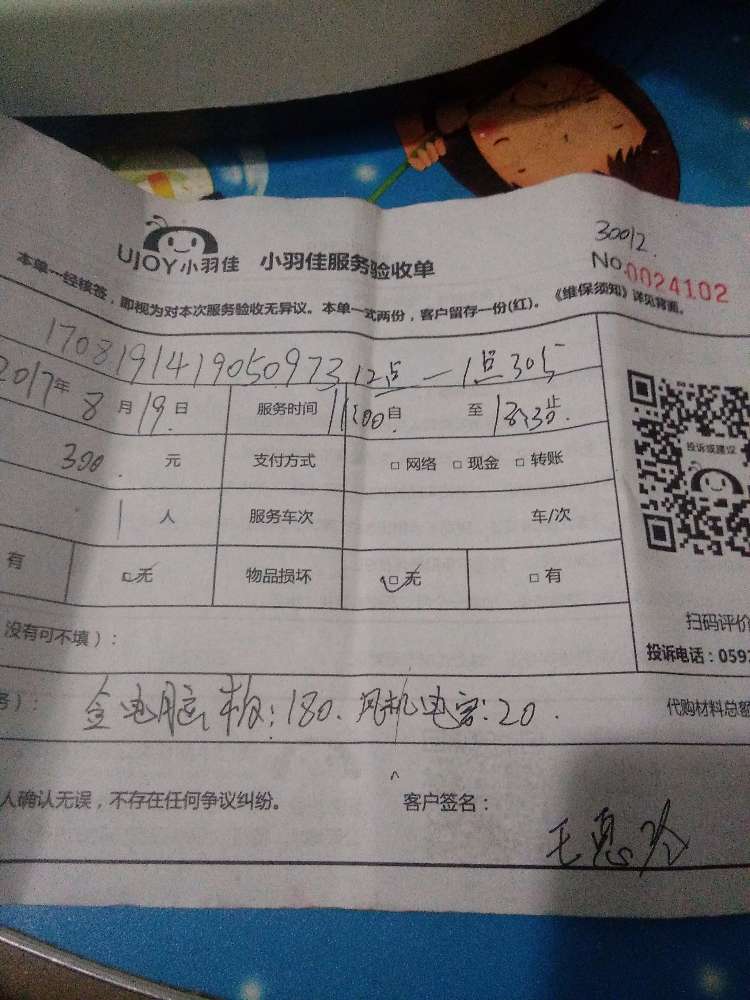 30012.
UJOY小羽佳 小羽佳服务验收单
No.0024102
本单一经核签，即视为对本次服务验收无异议。本单一式两份，客户留存一份(红)。《维保须知》详见背面。
170819141905097312点—1点30分
2017年8月19日 服务时间 自 至 止
投诉或建议
300.元 支付方式 □网络 □现金 □转账
1人 服务车次 车/次
有 □无 物品损坏 □无 □有
扫码评价
没有可不填）：
投诉电话：059
务）：电脑板：180.风机电容：20.
代购材料总额
人确认无误，不存在任何争议纠纷。 客户签名：
王惠玲